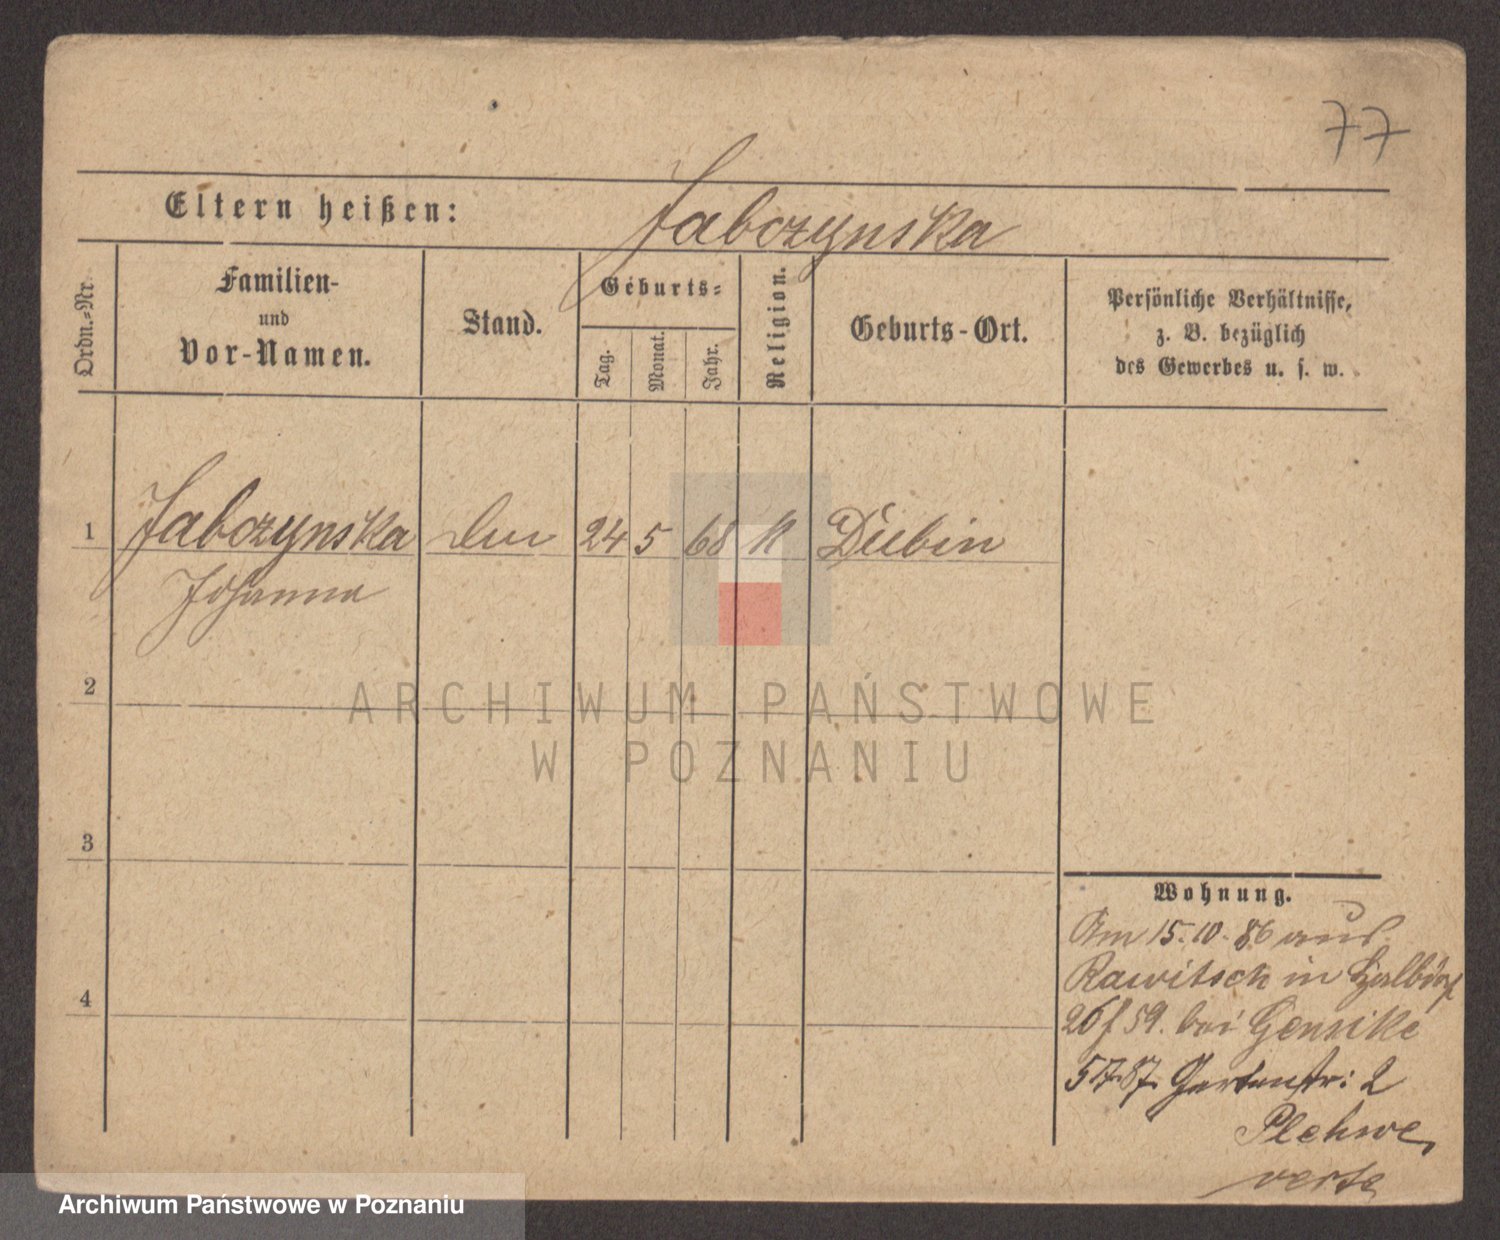 77
Eltern heißen: Jabczynska
Ordn.-Nr.
Familien-
und
Vor-Namen.
Stand.
Geburts-
Tag.
Monat.
Jahr.
Religion.
Geburts-Ort.
Persönliche Verhältnisse,
z. B. bezüglich
des Gewerbes u. s. w.
1 Jabczynska 24 5 68 K Dubin
Johanna
2
3
4
Wohnung.
Am 15.10.86 aus
Rawitsch in Halbdorf
26 f 59. bei Gensike
5/7.87. Gartenstr: 2
Plehwe,
verte
ARCHIWUM PAŃSTWOWE
W POZNANIU
Archiwum Państwowe w Poznaniu